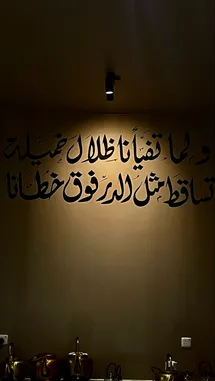 ولما تفيأنا ظلال خميلة
تساقط مثل الدر فوق خطانا